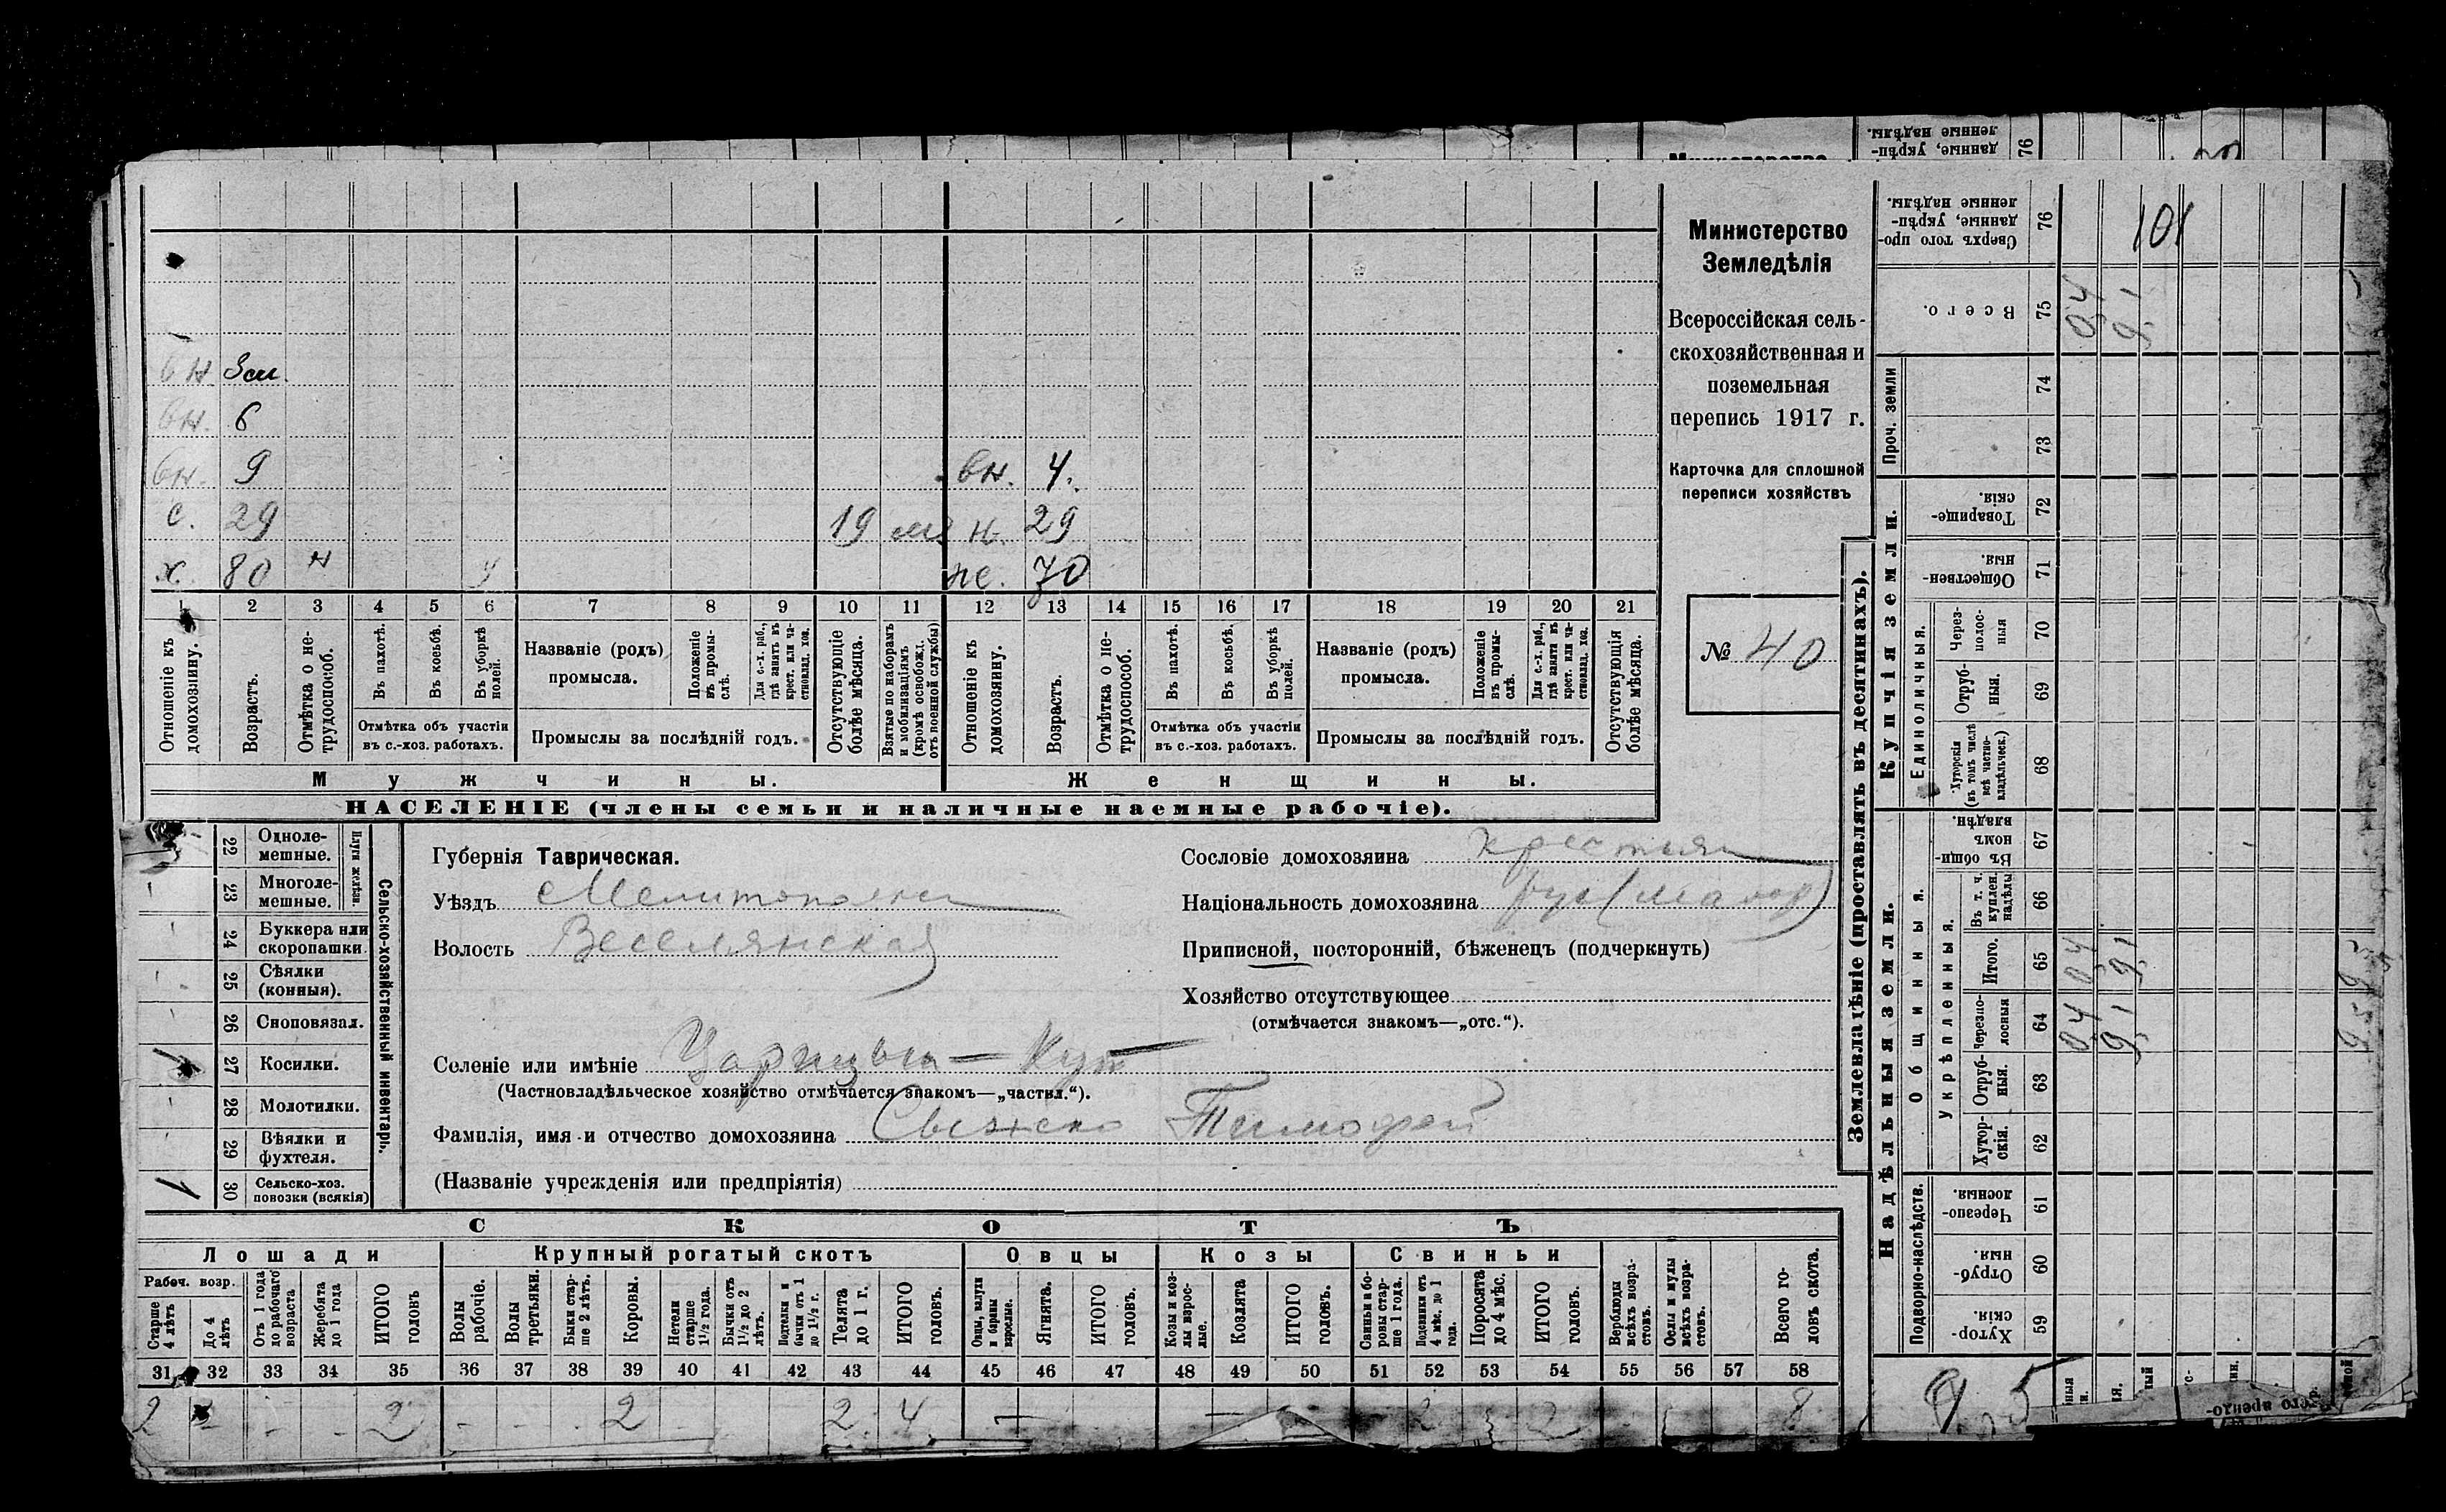 Министерство
Земледѣлія
Всероссійская сель-
скохозяйственная и
поземельная
перепись 1917 г.
Карточка для сплошной
переписи хозяйствъ
№ 40
вн. 3 м.
вн. 6
вн. 9 вн. 4.
с. 29 19 м. н. 29
х. 80 н у же. 70
1 2 3 4 5 6 7 8 9 10 11 12 13 14 15 16 17 18 19 20 21
Отношеніе къ домохозяину.
Возрастъ.
Отмѣтка о не-трудоспособ.
Въ пахотѣ.
Въ косьбѣ.
Въ уборкѣ полей.
Отмѣтка объ участіи
въ с.-хоз. работахъ.
Названіе (родъ)
промысла.
Положеніе въ промы-слѣ.
Для с.-х. раб., гдѣ занятъ въ крест. или ча-стновлад. хоз.
Промыслы за послѣдній годъ.
Отсутствующіе болѣе мѣсяца.
Взятые по наборамъ и мобилизаціямъ (кромѣ освобожд. отъ военной службы)
Отношеніе къ домохозяину.
Возрастъ.
Отмѣтка о не-трудоспособ.
Въ пахотѣ.
Въ косьбѣ.
Въ уборкѣ полей.
Отмѣтка объ участіи
въ с.-хоз. работахъ.
Названіе (родъ)
промысла.
Положеніе въ промы-слѣ.
Для с.-х. раб., гдѣ заняти въ крест. или ча-стновлад. хоз.
Промыслы за послѣдній годъ.
Отсутствующія болѣе мѣсяца.
Мужчины.
Женщины.
НАСЕЛЕНІЕ (члены семьи и наличные наемные рабочіе).
Сельско-хозяйственный инвентарь.
Плуги желѣзн.
22 Одноле-мешные.
23 Многоле-мешные.
24 Буккера или скоропашки
25 Сѣялки (конныя).
26 Сноповязал.
27 Косилки. 1
28 Молотилки.
29 Вѣялки и фухтеля.
30 Сельско-хоз. повозки (всякія) 1
Губернія Таврическая.
Уѣздъ Мелитопольск
Волость Веселянская
Селеніе или имѣніе Царицын-Кут
(Частновладѣльческое хозяйство отмѣчается знакомъ—„частвл.“).
Фамилія, имя и отчество домохозяина Тимофей
(Названіе учрежденія или предпріятія)
Сословіе домохозяина крестьян
Національность домохозяина рус (малор)
Приписной, посторонній, бѣженецъ (подчеркнуть)
Хозяйство отсутствующее
(отмѣчается знакомъ—„отс.“).
СКОТЪ
Лошади Крупный рогатый скотъ Овцы Козы Свиньи
Рабоч. возр.
Старше 4 лѣтъ
До 4 лѣтъ
Отъ 1 года до рабочаго возраста
Жеребята до 1 года
ИТОГО головъ
Волы рабочіе.
Волы третьяки.
Быки стар-ше 2 лѣтъ.
Коровы.
Нетели старше 1½ года.
Бычки отъ 1½ до 2 лѣтъ.
Подтелки и бычки отъ 1 до 1½ г.
Телята до 1 г.
ИТОГО головъ.
Овцы, валухи и бараны взрослые.
Ягнята.
ИТОГО головъ.
Козы и коз-лы взрос-лые.
Козлята
ИТОГО головъ.
Свиньи и бо-ровы стар-ше 1 года.
Подсвинки отъ 4 мѣс. до 1 года.
Поросята до 4 мѣс.
ИТОГО головъ.
Верблюды всѣхъ возра-стовъ.
Ослы и мулы всѣхъ возра-стовъ.
Всего го-ловъ скота.
31 32 33 34 35 36 37 38 39 40 41 42 43 44 45 46 47 48 49 50 51 52 53 54 55 56 57 58
2 2 2 2 4 2 2 8
Землевладѣніе (проставлять въ десятинахъ).
Купчія земли.
Надѣльныя земли.
Сверхъ того про-данные, укрѣп-ленные надѣлы. 76 101
Всего. 75 0,4 9,1
Проч. земли
74
73
Товарище-скія. 72
Обществен-ныя. 71
Единоличныя.
Через-полос-ныя 70
Отруб-ныя. 69
Хуторскія (въ томъ числѣ всѣ частно-владѣльческ.) 68
Общинныя.
Въ общи-номъ владѣн. 67
Укрѣпленныя.
Въ т. ч. куплен. надѣлы 66
Итого. 65 0,4 9,1 9,5
Черезпо-лосныя 64 0,4 9,1 9,5
Отруб-ныя. 63
Хутор-скія. 62
Подворно-наслѣдств.
Черезпо-лосныя. 61
Отруб-ныя. 60
Хутор-скія. 59
9,5
данные, укрѣп-ленные надѣлы. 76